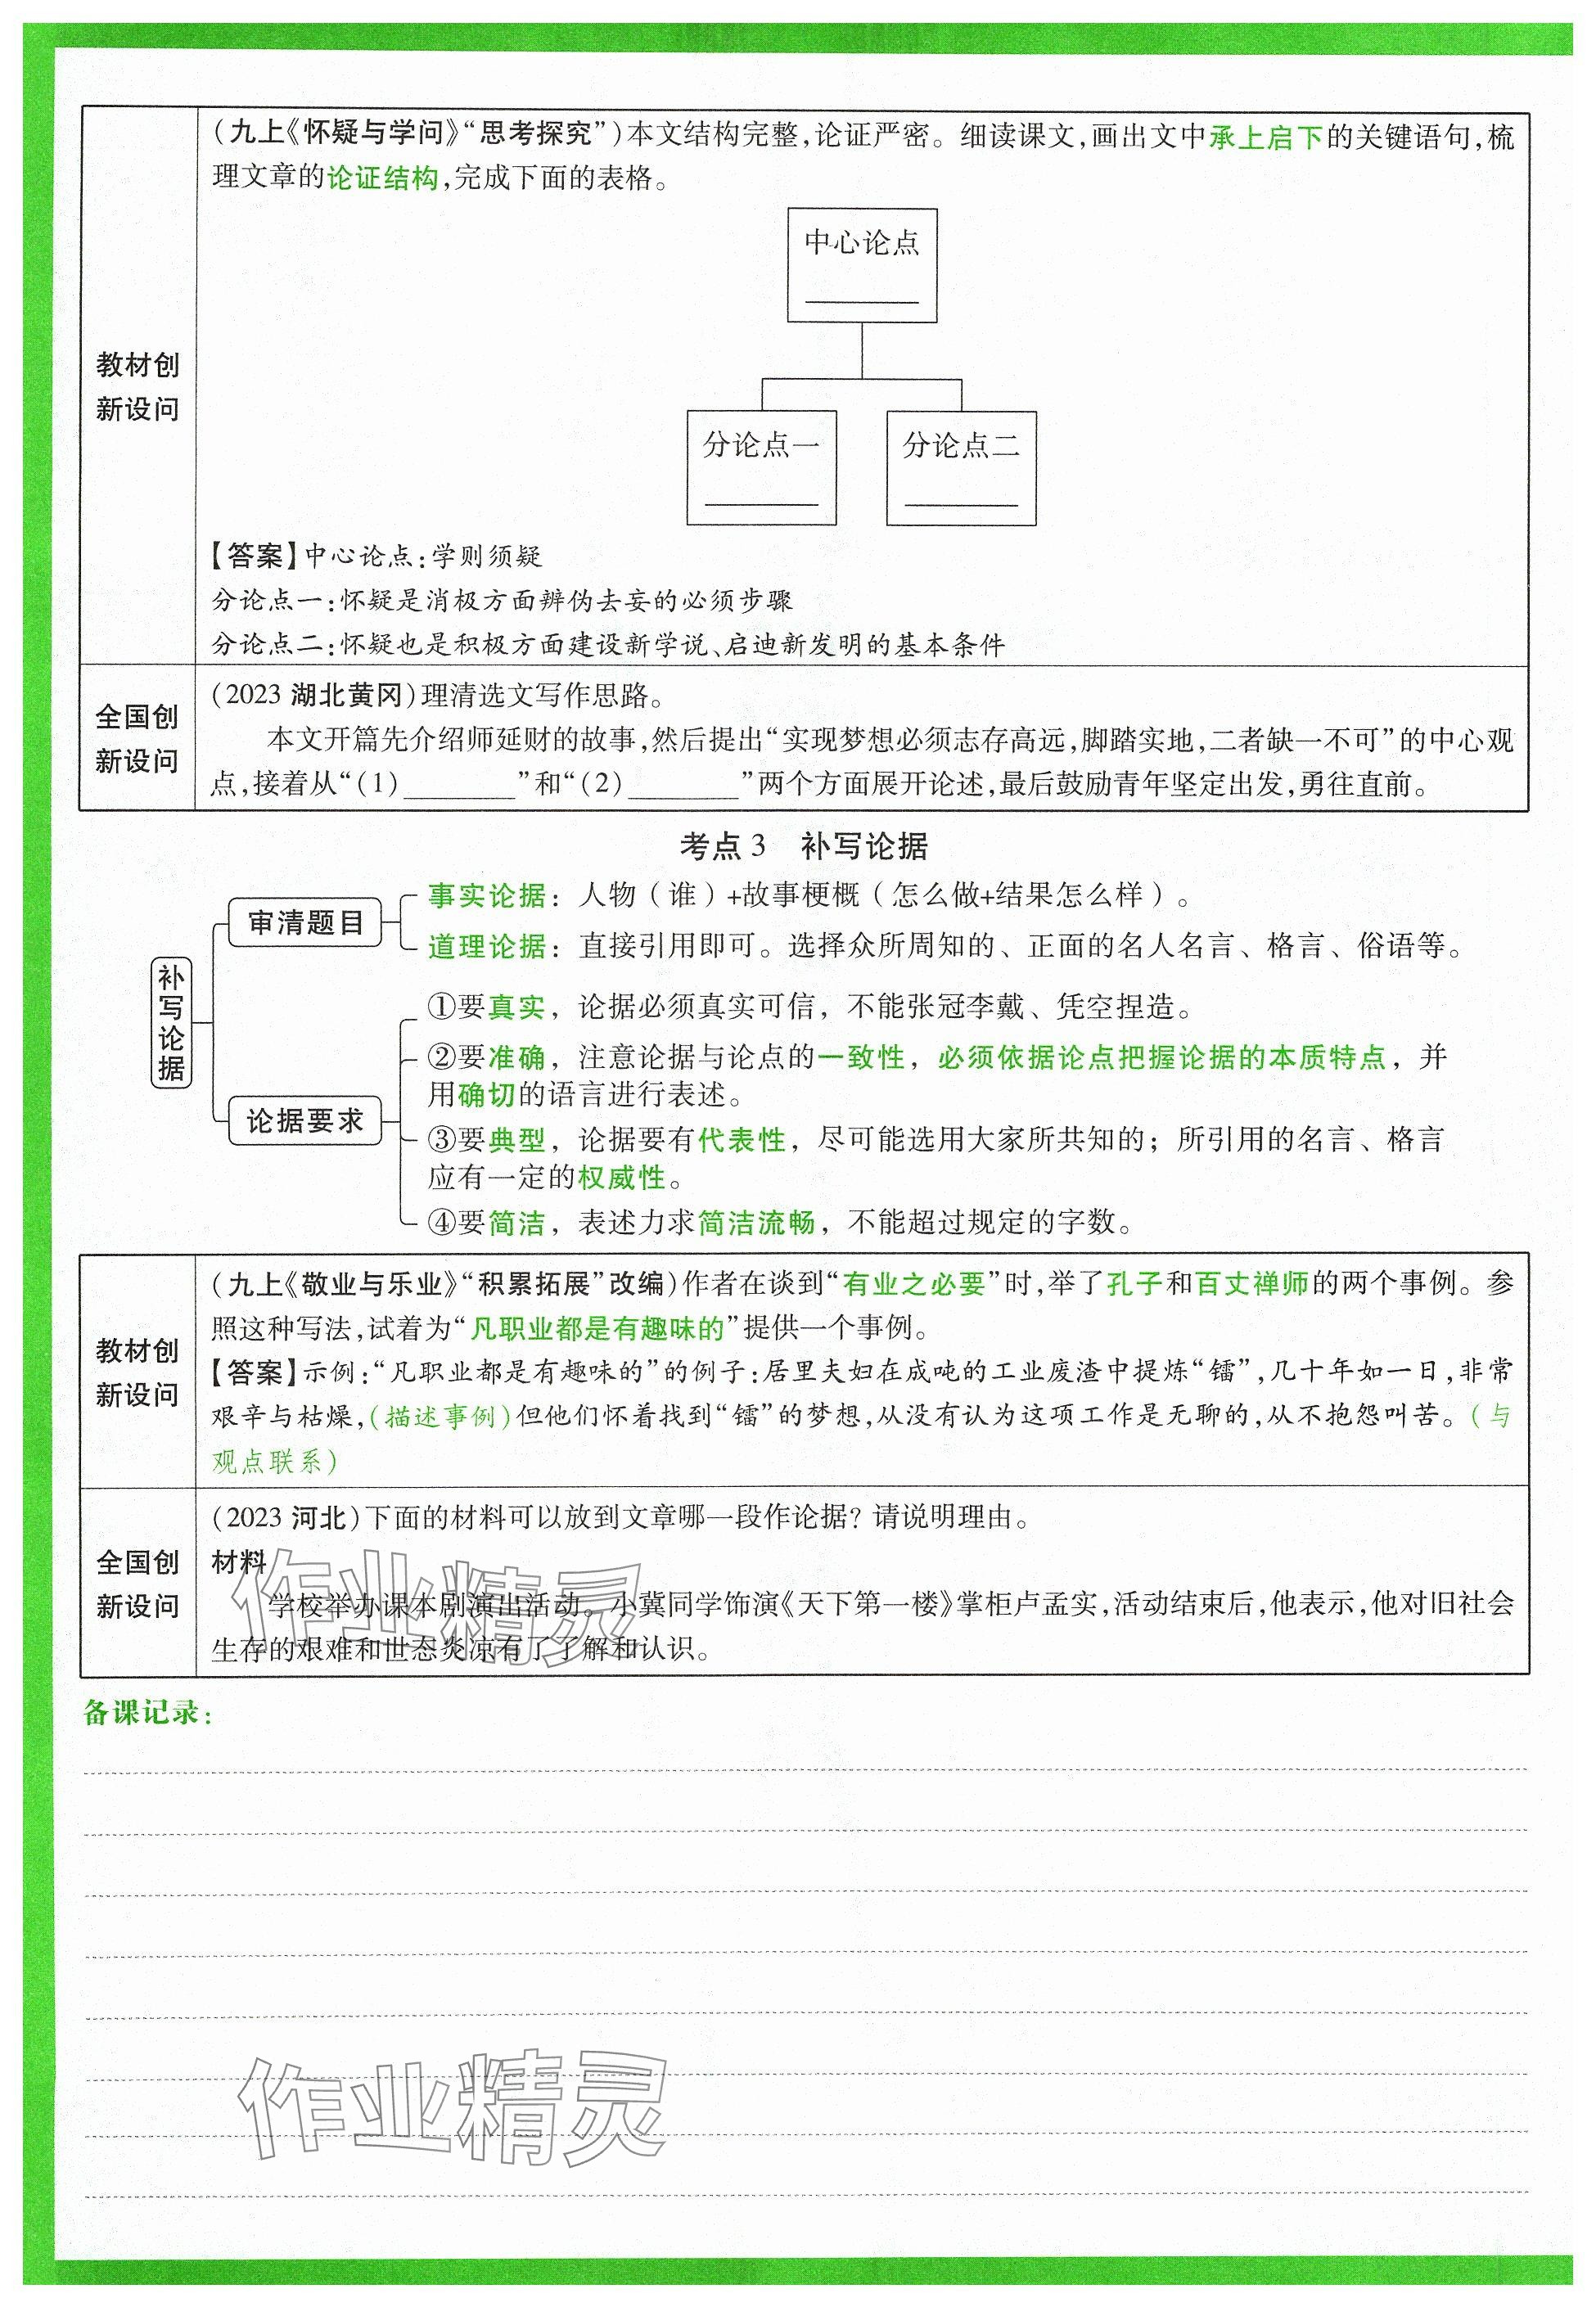 (九上《怀疑与学问》“思考探究”)本文结构完整,论证严密。细读课文,画出文中承上启下的关键语句,梳
理文章的论证结构,完成下面的表格。
中心论点
教材创
新设问
分论点一
分论点二
【答案】中心论点:学则须疑
分论点一:怀疑是消极方面辨伪去妄的必须步骤
分论点二:怀疑也是积极方面建设新学说、启迪新发明的基本条件
全国创
新设问
(2023 湖北黄冈)理清选文写作思路。
本文开篇先介绍师延财的故事,然后提出“实现梦想必须志存高远,脚踏实地,二者缺一不可”的中心观
点,接着从“(1)________”和“(2)________”两个方面展开论述,最后鼓励青年坚定出发,勇往直前。
考点 3 补写论据
补写论据
审清题目
事实论据：人物（谁）+故事梗概（怎么做+结果怎么样）。
道理论据：直接引用即可。选择众所周知的、正面的名人名言、格言、俗语等。
论据要求
①要真实，论据必须真实可信，不能张冠李戴、凭空捏造。
②要准确，注意论据与论点的一致性，必须依据论点把握论据的本质特点，并
用确切的语言进行表述。
③要典型，论据要有代表性，尽可能选用大家所共知的；所引用的名言、格言
应有一定的权威性。
④要简洁，表述力求简洁流畅，不能超过规定的字数。
教材创
新设问
(九上《敬业与乐业》“积累拓展”改编)作者在谈到“有业之必要”时,举了孔子和百丈禅师的两个事例。参
照这种写法,试着为“凡职业都是有趣味的”提供一个事例。
【答案】示例:“凡职业都是有趣味的”的例子:居里夫妇在成吨的工业废渣中提炼“镭”,几十年如一日,非常
艰辛与枯燥,(描述事例)但他们怀着找到“镭”的梦想,从没有认为这项工作是无聊的,从不抱怨叫苦。(与
观点联系)
全国创
新设问
(2023 河北)下面的材料可以放到文章哪一段作论据? 请说明理由。
材料
学校举办课本剧演出活动。小冀同学饰演《天下第一楼》掌柜卢孟实,活动结束后,他表示,他对旧社会
生存的艰难和世态炎凉有了了解和认识。
作业精灵
备课记录:
作业精灵